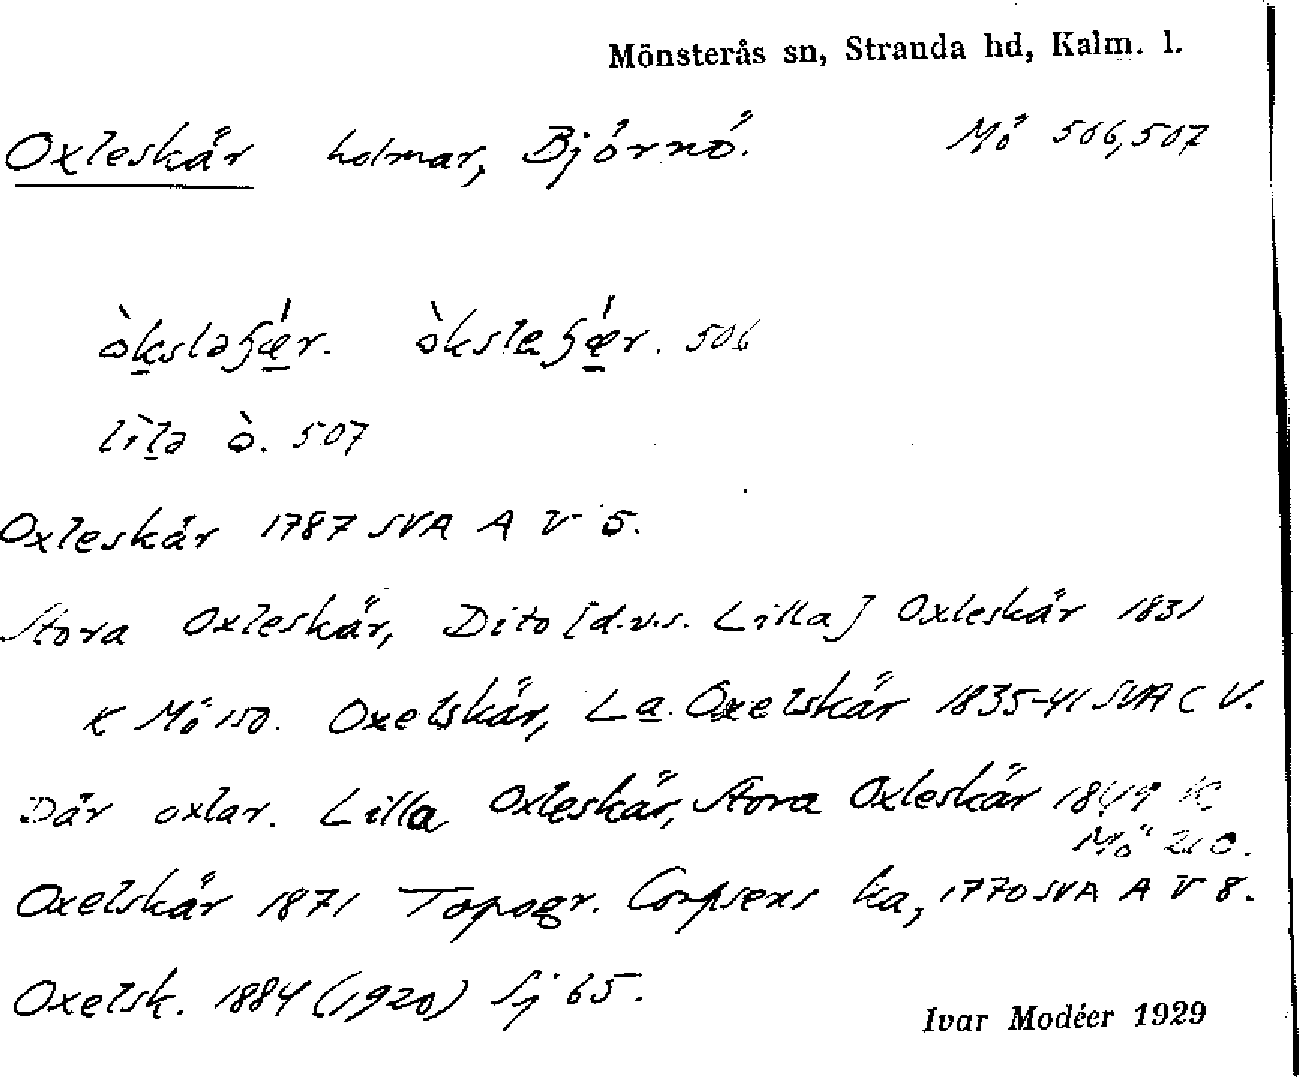 Mönsterås sn, Stranda hd, Kalm. l.
Oxleskär holmar, Björnö. Mö 506,507
òksləʃǽr. òksleʃǽr. 506
lìlə ò. 507
Oxleskär 1787 SVA A V 5.
Stora Oxleskär, Dito [d.v.s. Lilla] Oxleskär 1831
K Mö 150. Oxelskär, La. Oxelskär 1835-41 SVA C V.
Där oxlar. Lilla Oxleskär, Stora Oxleskär 1849 K
Mö 210.
Oxelskär 1871 Topogr. Corpsens ka, 1770 SVA A V 8.
Oxelsk. 1884 (1920) Sj 65.
Ivar Modéer 1929